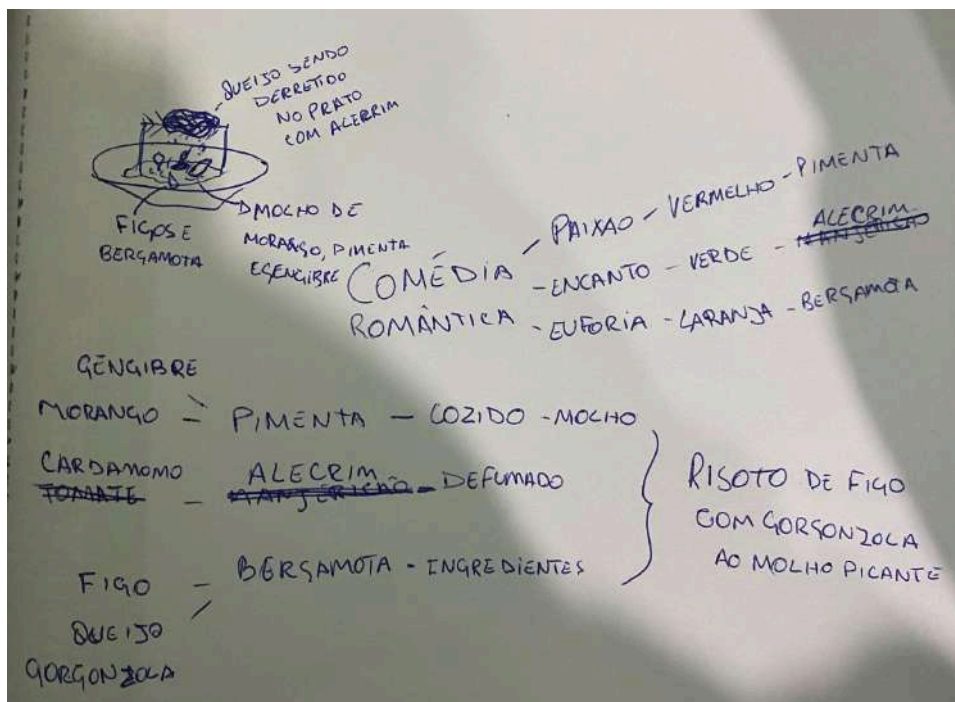 QUEIJO SENDO
DERRETIDO
NO PRATO
COM ACERRIM
FIGOS E
BERGAMOTA
MOLHO DE
MORANGO, PIMENTA
E GENGIBRE
COMÉDIA
ROMÂNTICA
- PAIXAO - VERMELHO - PIMENTA
- ENCANTO - VERDE - MANJERICÃO ALECRIM
- EUFORIA - LARANJA - BERGAMOTA
GENGIBRE
MORANGO - PIMENTA - COZIDO - MOLHO
CARDAMOMO ALECRIM
TOMATE - MANJERICÃO - DEFUMADO
FIGO - BERGAMOTA - INGREDIENTES
QUEIJO
GORGONZOLA
RISOTO DE FIGO
COM GORGONZOLA
AO MOLHO PICANTE